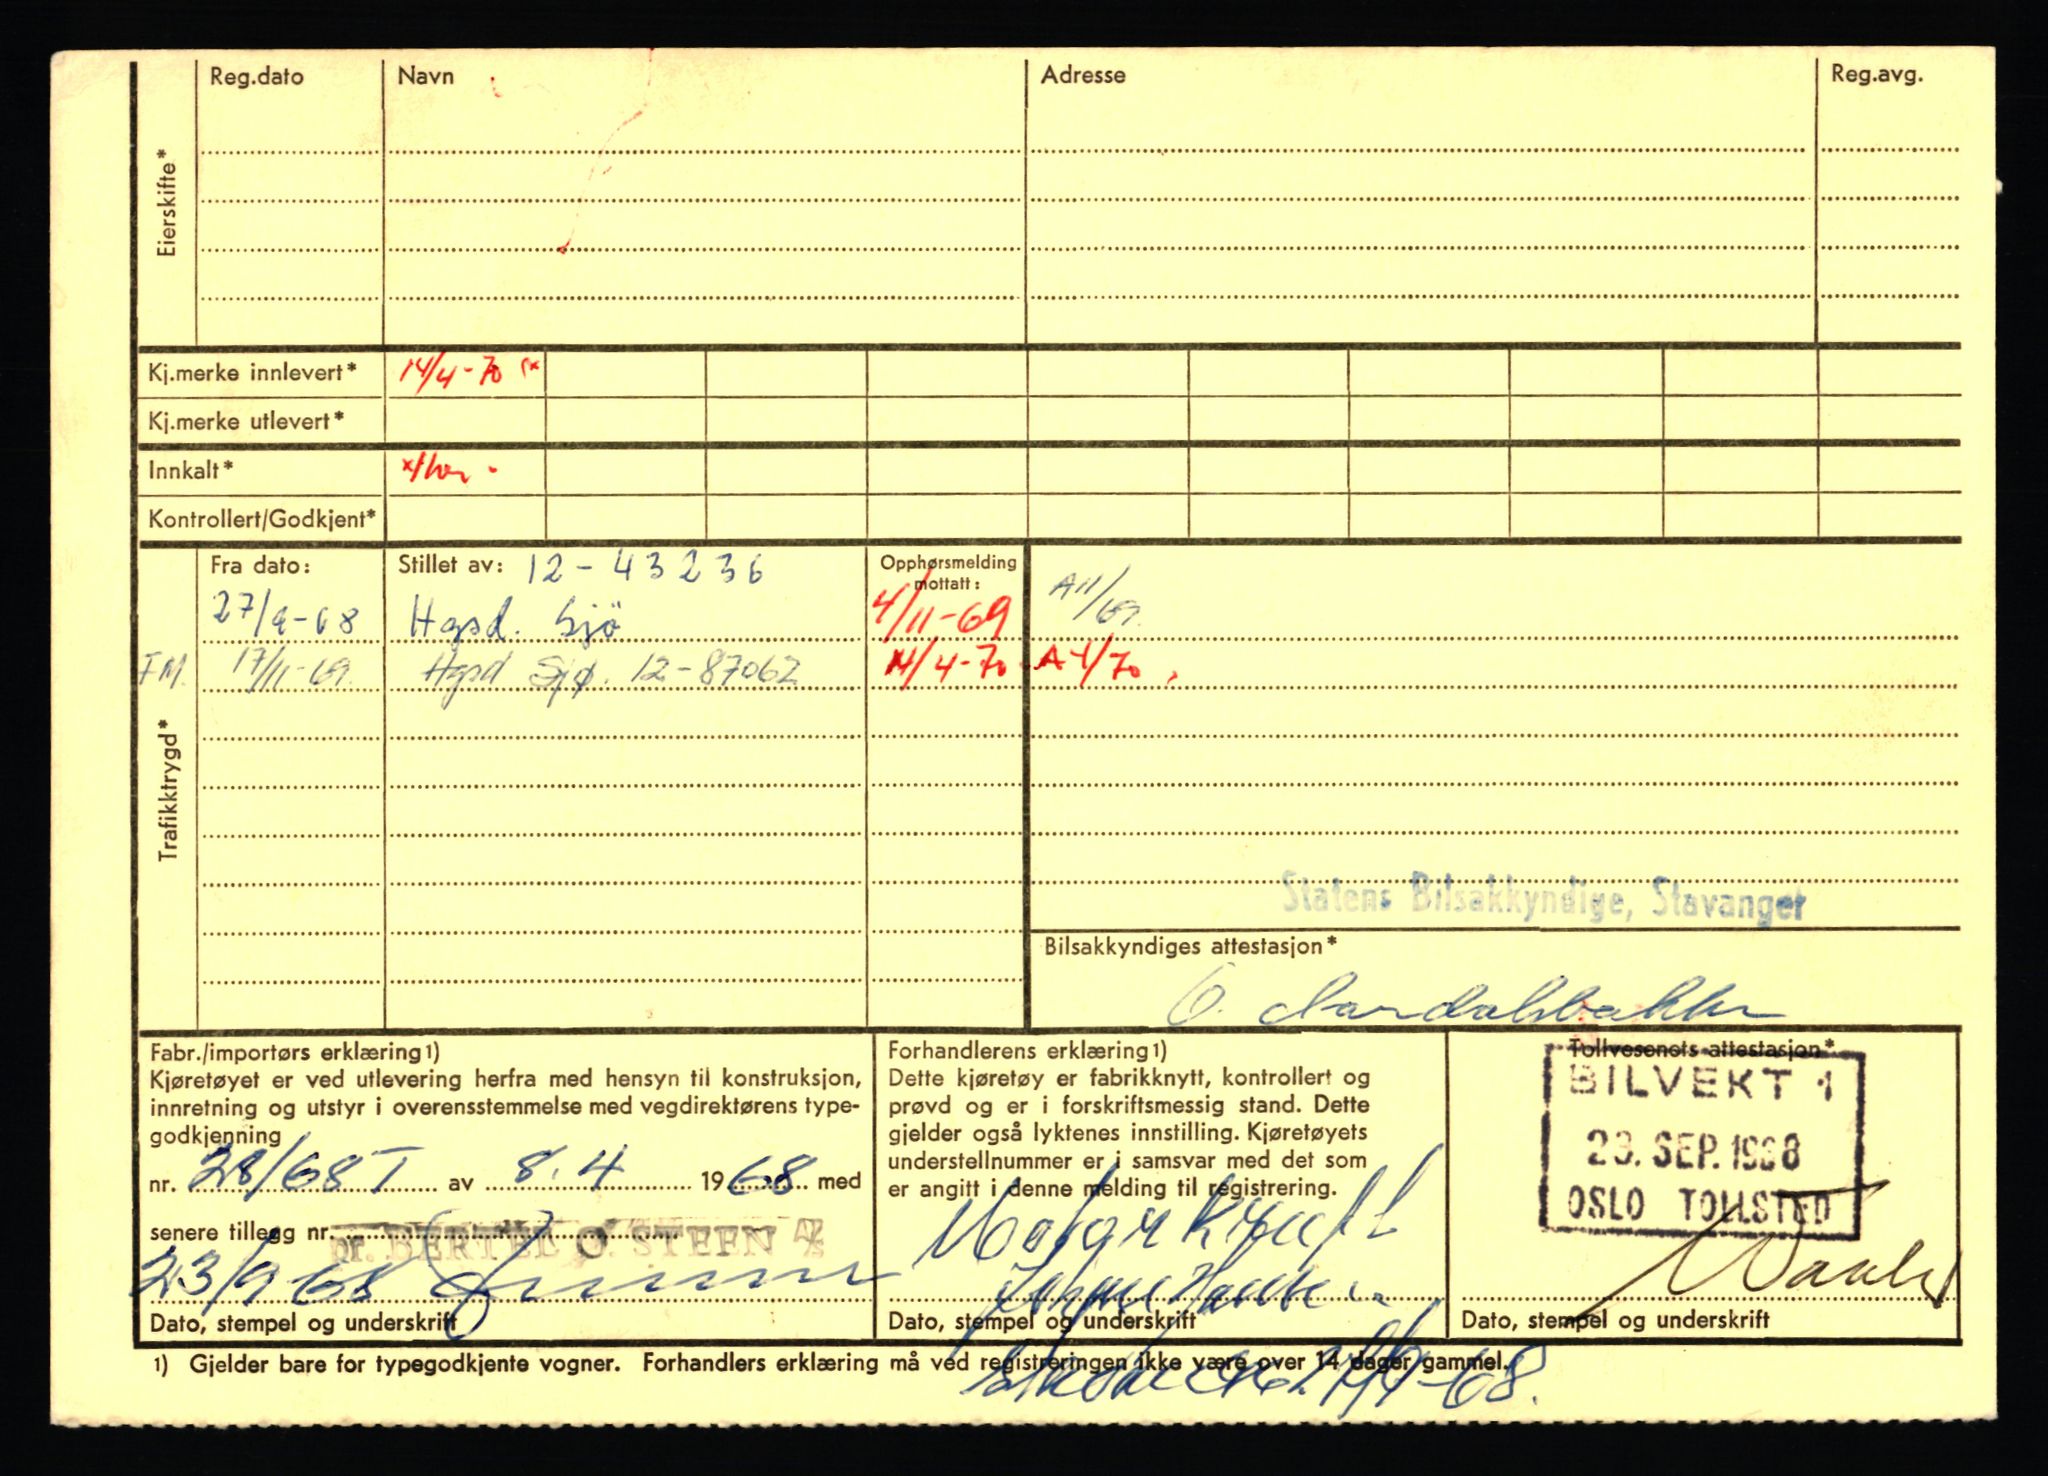 Reg.dato Navn Adresse Reg.avg.
Eierskifte*
Kj.merke innlevert* 14/4-70
Kj.merke utlevert*
Innkalt*
Kontrollert/Godkjent*
Trafikktrygd*
Fra dato: Stillet av: 12-43236 Opphørsmelding mottatt:
27/9-68 Hgsd. Sjö 4/11-69 A11/69.
FM. 17/11-69. Hgsd Sjø. 12-87062 14/4-70 A4/70
Statens Bilsakkyndige, Stavanger
Bilsakkyndiges attestasjon*
Fabr./importørs erklæring1)
Kjøretøyet er ved utlevering herfra med hensyn til konstruksjon,
innretning og utstyr i overensstemmelse med vegdirektørens type-
godkjenning
nr. 28/68 T av 8.4 1968 med
senere tillegg nr.
pr. BERTEL O. STEEN
23/9 68
Dato, stempel og underskrift
Forhandlerens erklæring1)
Dette kjøretøy er fabrikknytt, kontrollert og
prøvd og er i forskriftsmessig stand. Dette
gjelder også lyktenes innstilling. Kjøretøyets
understellnummer er i samsvar med det som
er angitt i denne melding til registrering.
Dato, stempel og underskrift
Tollvesenets attestasjon*
BILVEKT 1
23. SEP. 1968
OSLO TOLLSTED
Dato, stempel og underskrift
1) Gjelder bare for typegodkjente vogner. Forhandlers erklæring må ved registreringen ikke være over 14 dager gammel.